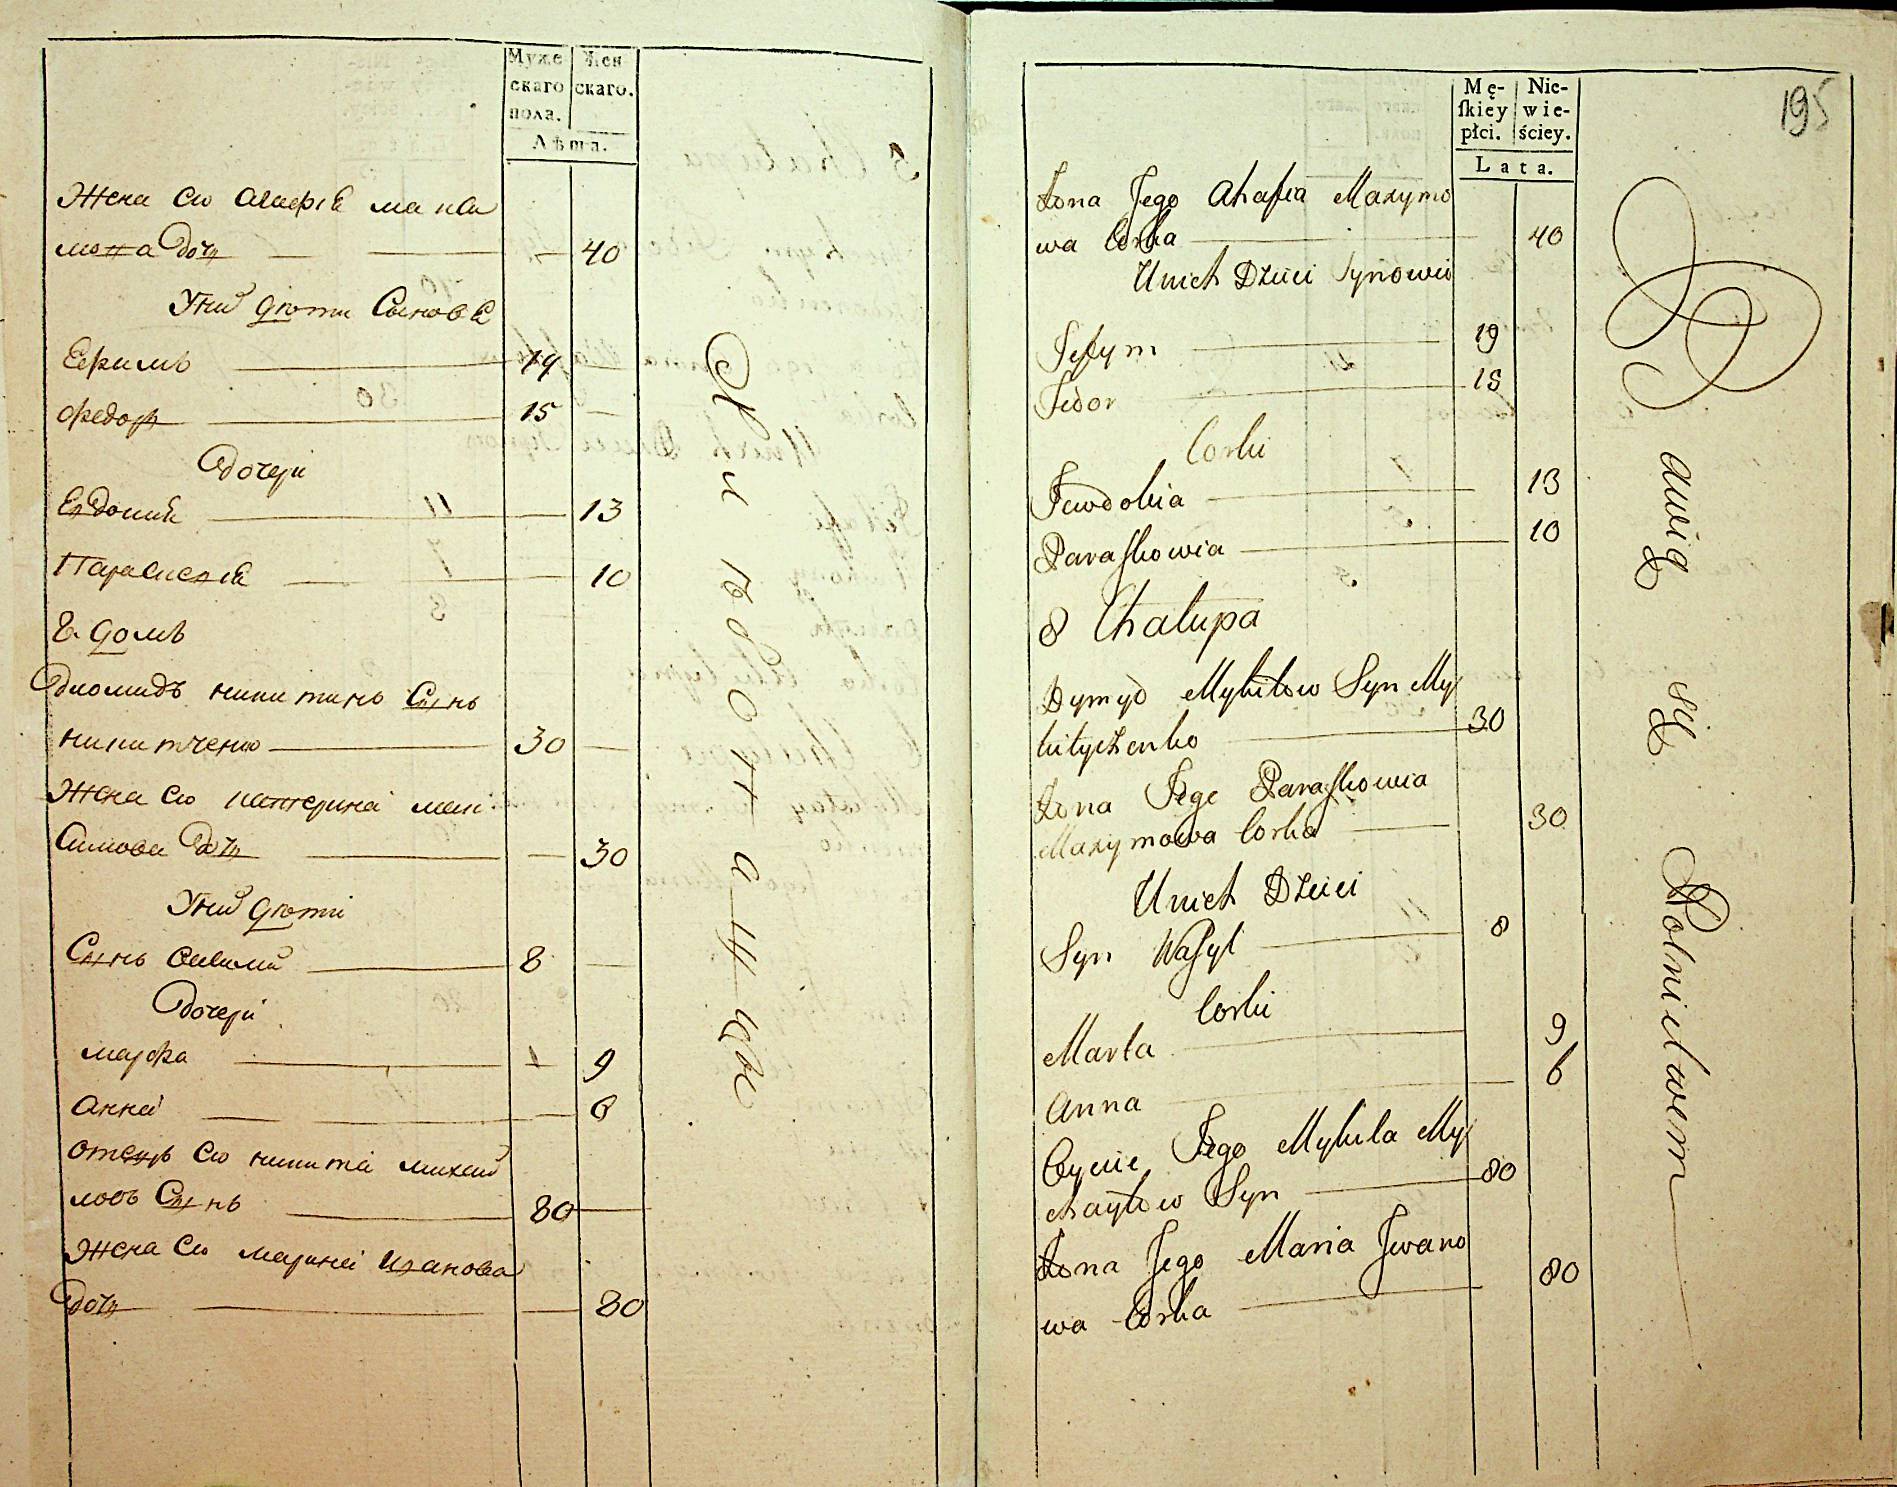 Муже
скаго
пола.
Жен
скаго.
Лѣта.
Жена его Агафія макси
мова дочь 40
У них дѣти Сыновья
Ефимъ 19
Федор 15
Дочери
Евдокия 13
Парасковія 10
8 домъ
Диомидъ никитинъ Сынъ
никитченко 30
Жена его катерина мак
симова дочь 30
У них дѣти
Сынъ василий 8
Дочери
марфа 9
анна 6
отецъ его никита михай
ловъ Сынъ 80
Жена его марина иванова
дочь 80
195
Mę-
ſkiey
płci.
Nie-
wie-
ściey.
Lata.
Żona Jego Ahafia Maxymo
wa Corka 40
U nich Dzieci Synowie
Jefym 19
Fedor 15
Corki
Jewdokia 13
Paraſkowia 10
8 Chałupa
Dymyd Mykitow Syn My
kityczenko 30
Żona Jego Paraſkowia
Maxymowa Corka 30
U nich Dzieci
Syn Waſyl 8
Corki
Marta 9
Anna 6
Oycie Jego Mykita My
chayłow Syn 80
Żona Jego Maria Jwano
wa Corka 80
Bawią się Rolnictwem